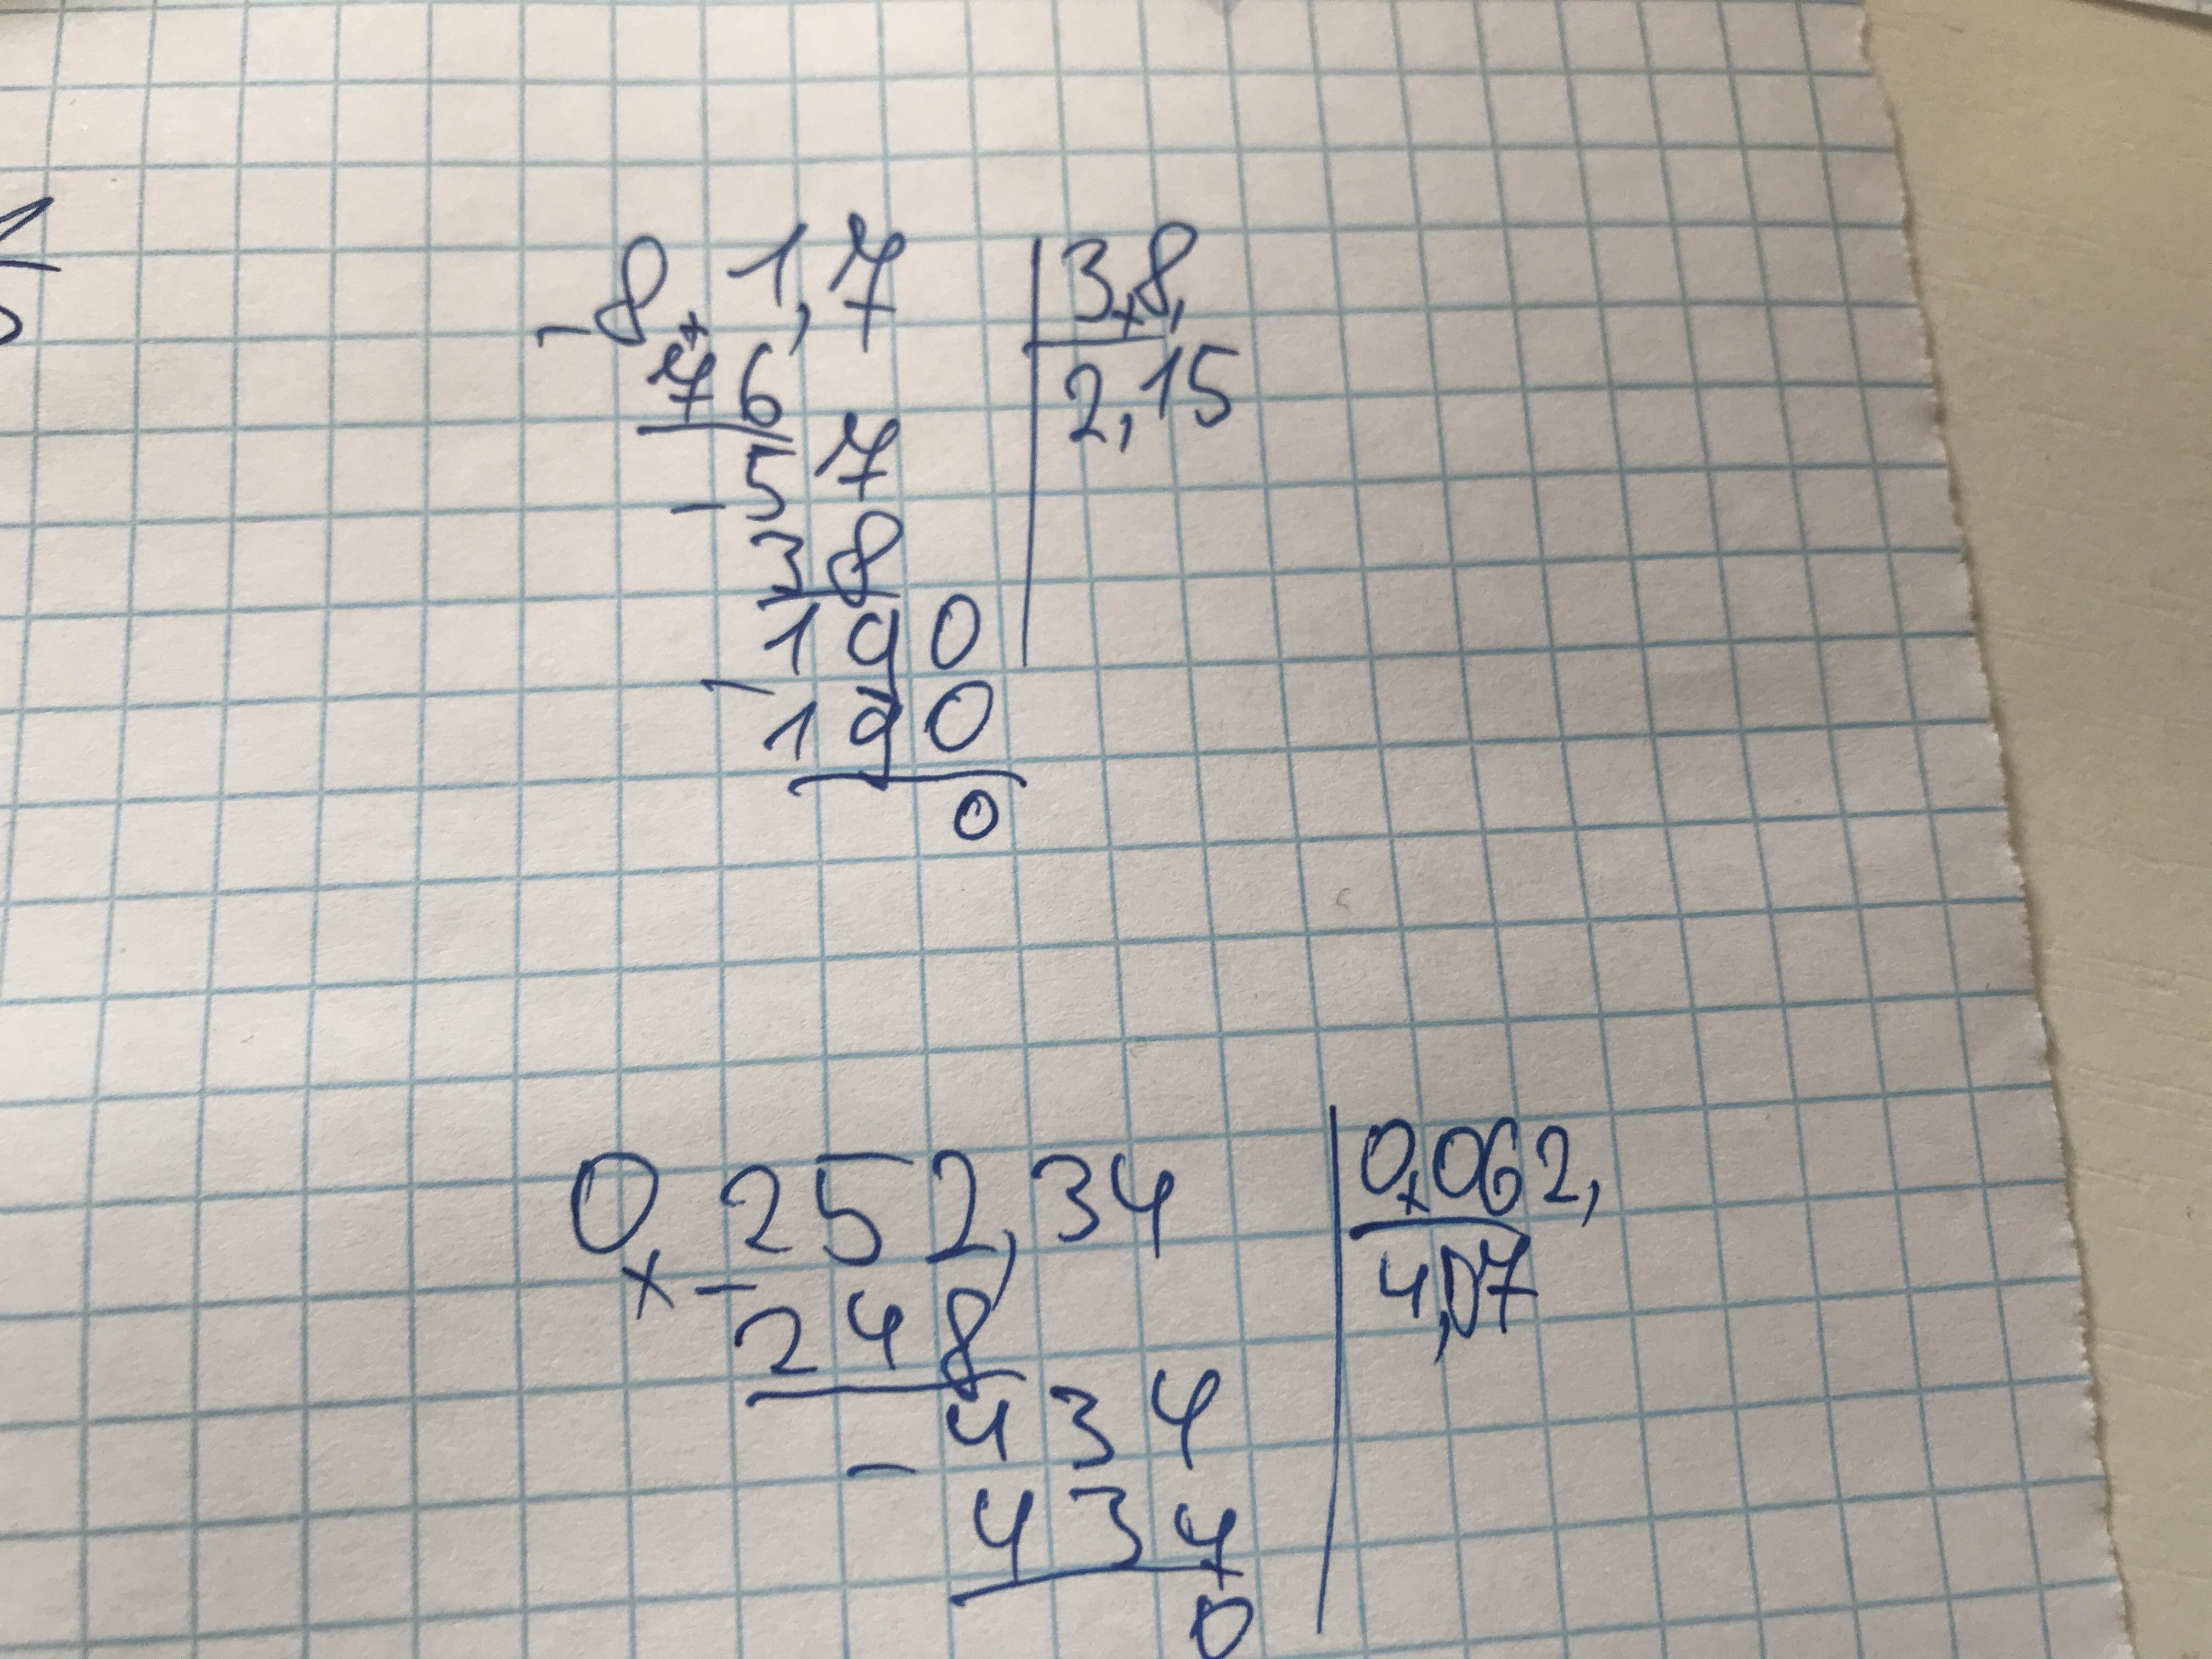 -8 1,7 | 3,8,
76 | 2,15
-57
38
190
-190
0
0, 252,34 | 0,062,
-248 | 4,07
434
-434
0